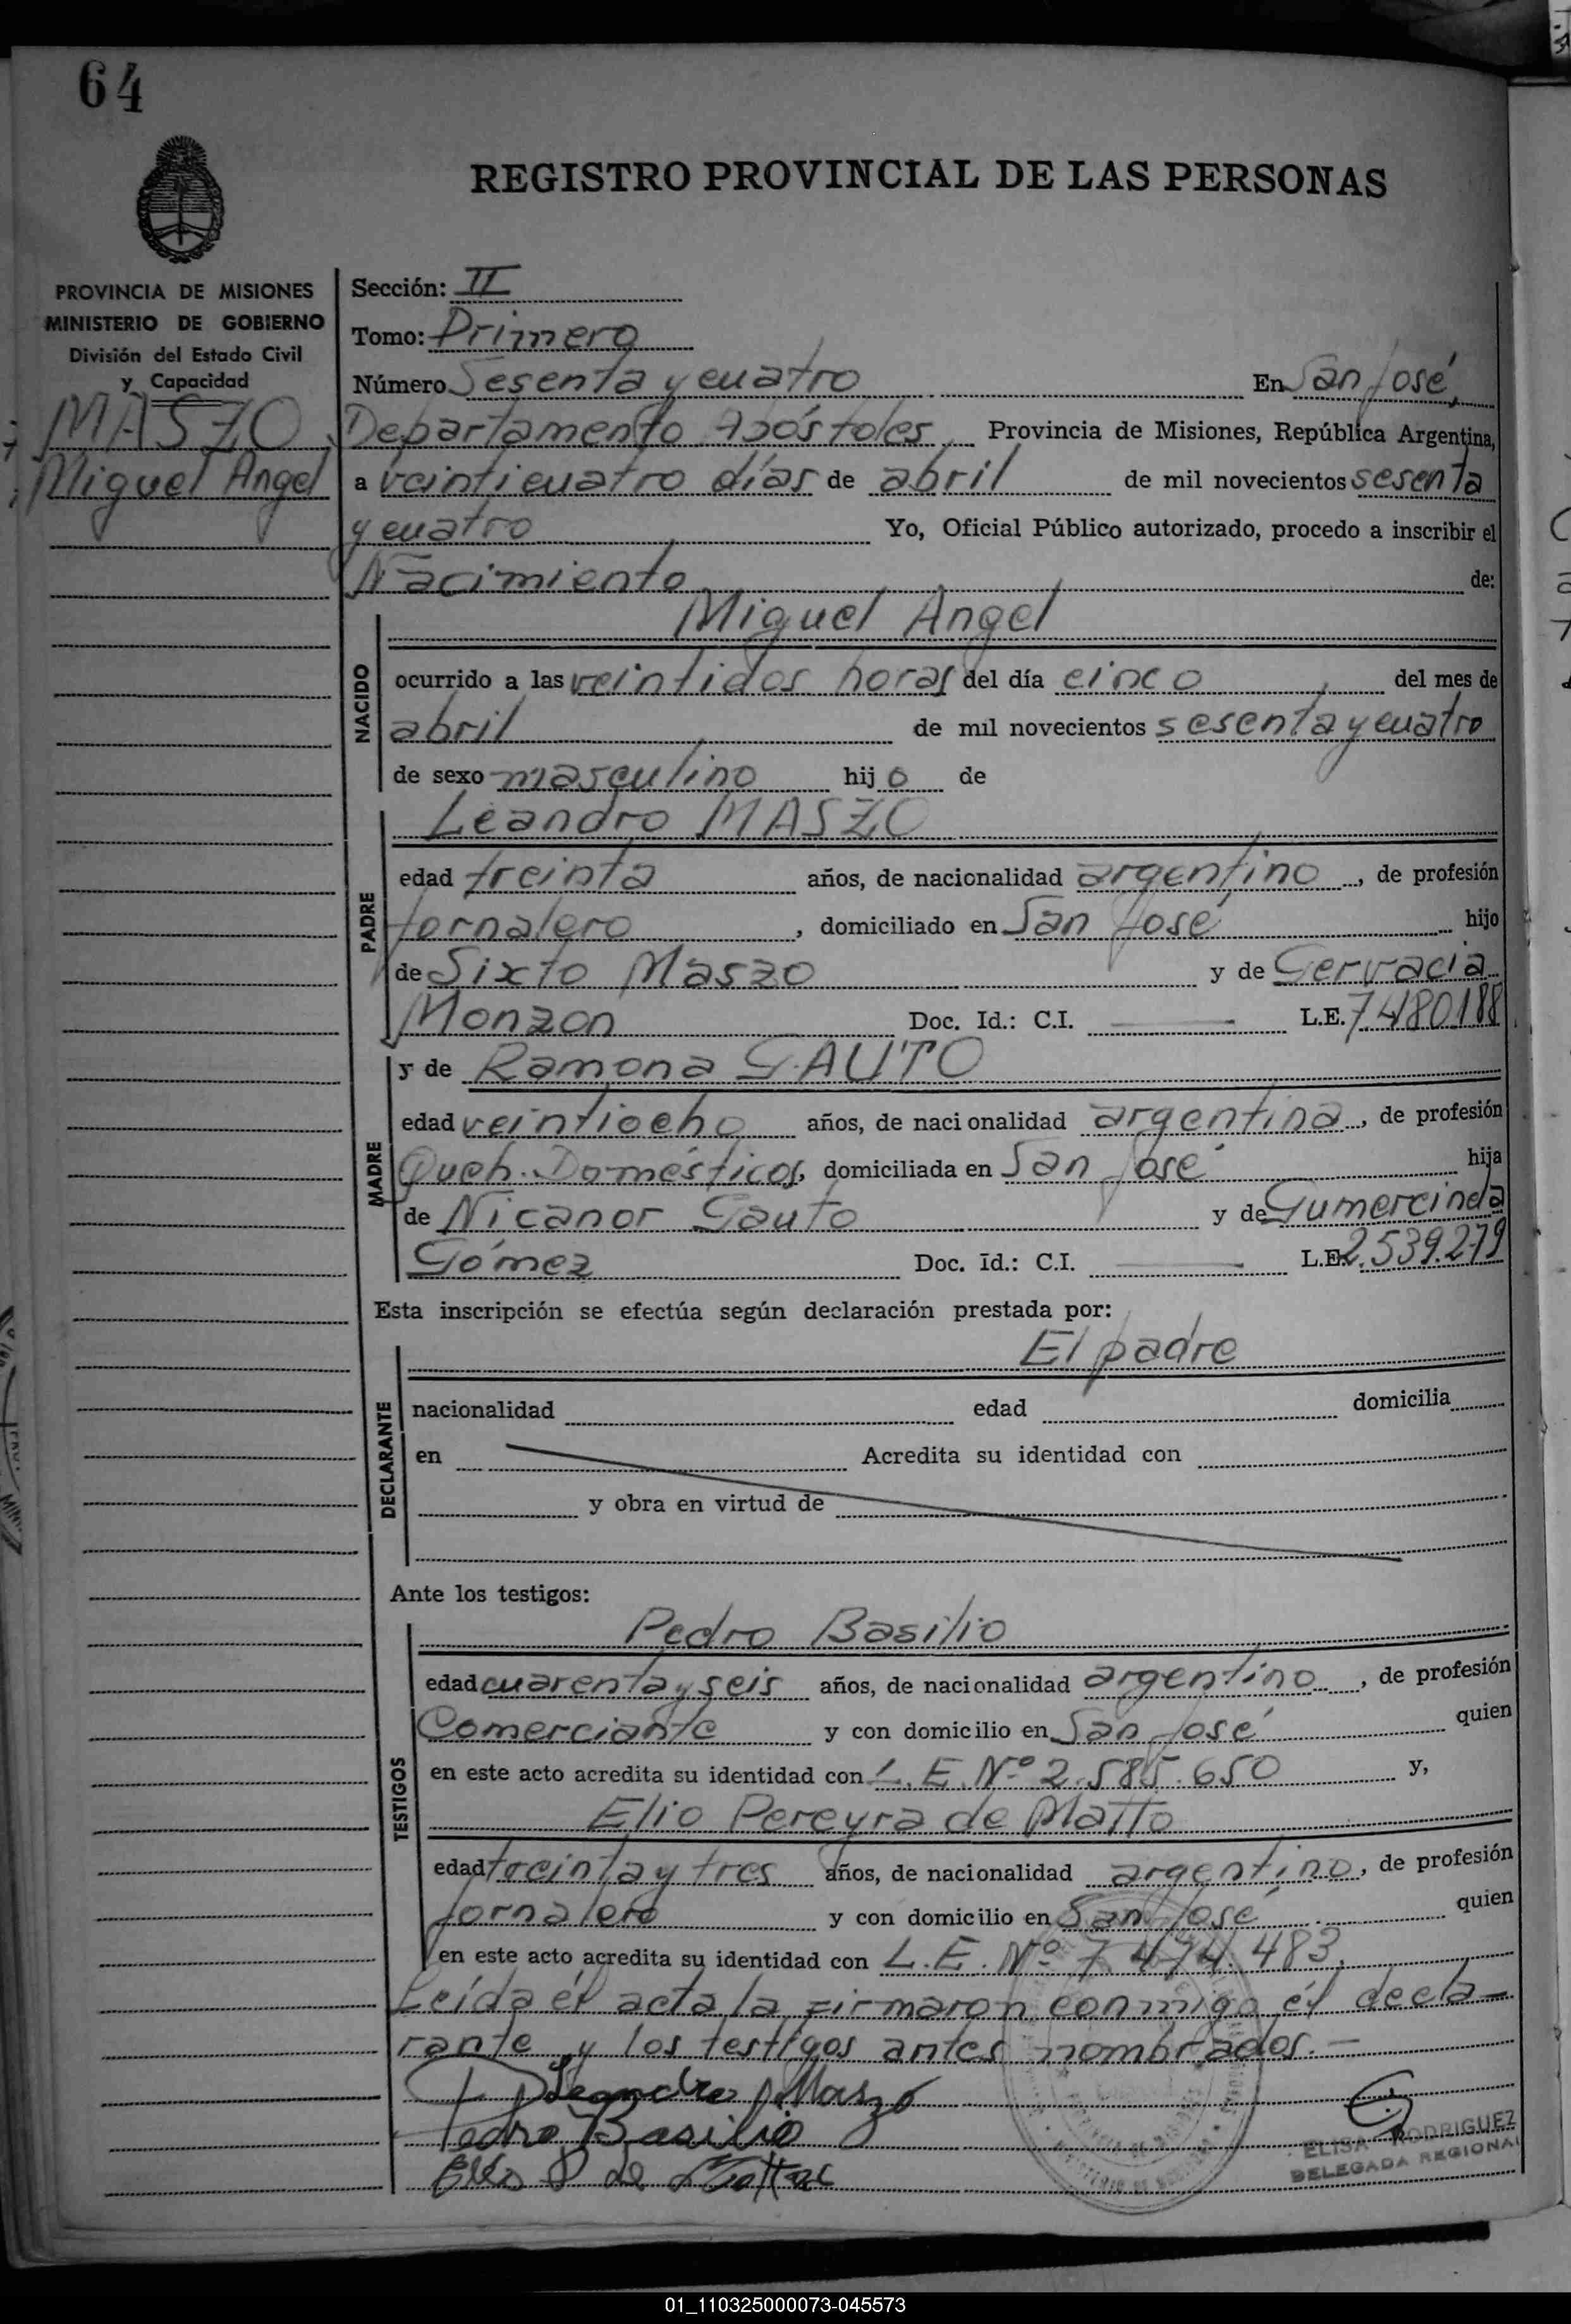 64
REGISTRO PROVINCIAL DE LAS PERSONAS
PROVINCIA DE MISIONES
MINISTERIO DE GOBIERNO
División del Estado Civil
y Capacidad
MASZO
Miguel Angel
Sección: II
Tomo: Primero
Número Sesenta y cuatro En San José,
Departamento Apóstoles, Provincia de Misiones, República Argentina,
a veinticuatro días de abril de mil novecientos sesenta
y cuatro Yo, Oficial Público autorizado, procedo a inscribir el
Nacimiento de:
NACIDO
Miguel Angel
ocurrido a las veintidos horas del día cinco del mes de
abril de mil novecientos sesenta y cuatro
de sexo masculino hijo de
PADRE
Leandro MASZO
edad treinta años, de nacionalidad argentino, de profesión
Jornalero, domiciliado en San José hijo
de Sixto Maszo y de Gervacia
Monzon Doc. Id.: C.I. L.E. 7480188
MADRE
y de Ramona GAUTO
edad veintiocho años, de nacionalidad argentina, de profesión
Queh. Domésticos, domiciliada en San José hija
de Nicanor Gauto y de Gumercinda
Gómez Doc. Id.: C.I. L.E. 2.539.279
Esta inscripción se efectúa según declaración prestada por:
DECLARANTE
El padre
nacionalidad edad domicilia
en Acredita su identidad con
y obra en virtud de
Ante los testigos:
TESTIGOS
Pedro Basilio
edad cuarenta y seis años, de nacionalidad argentino, de profesión
Comerciante y con domicilio en San José quien
en este acto acredita su identidad con L.E. Nº 2.585.650 y,
Elio Pereyra de Matto
edad treinta y tres años, de nacionalidad argentino, de profesión
Jornalero y con domicilio en San José quien
en este acto acredita su identidad con L.E. Nº 7.474.483.
Leída él acta la firmaron conmigo él decla-
rante y los testigos antes nombrados.-
Leandro Maszo
Pedro Basilio
ELISA RODRIGUEZ
DELEGADA REGIONAL
01_110325000073-045573